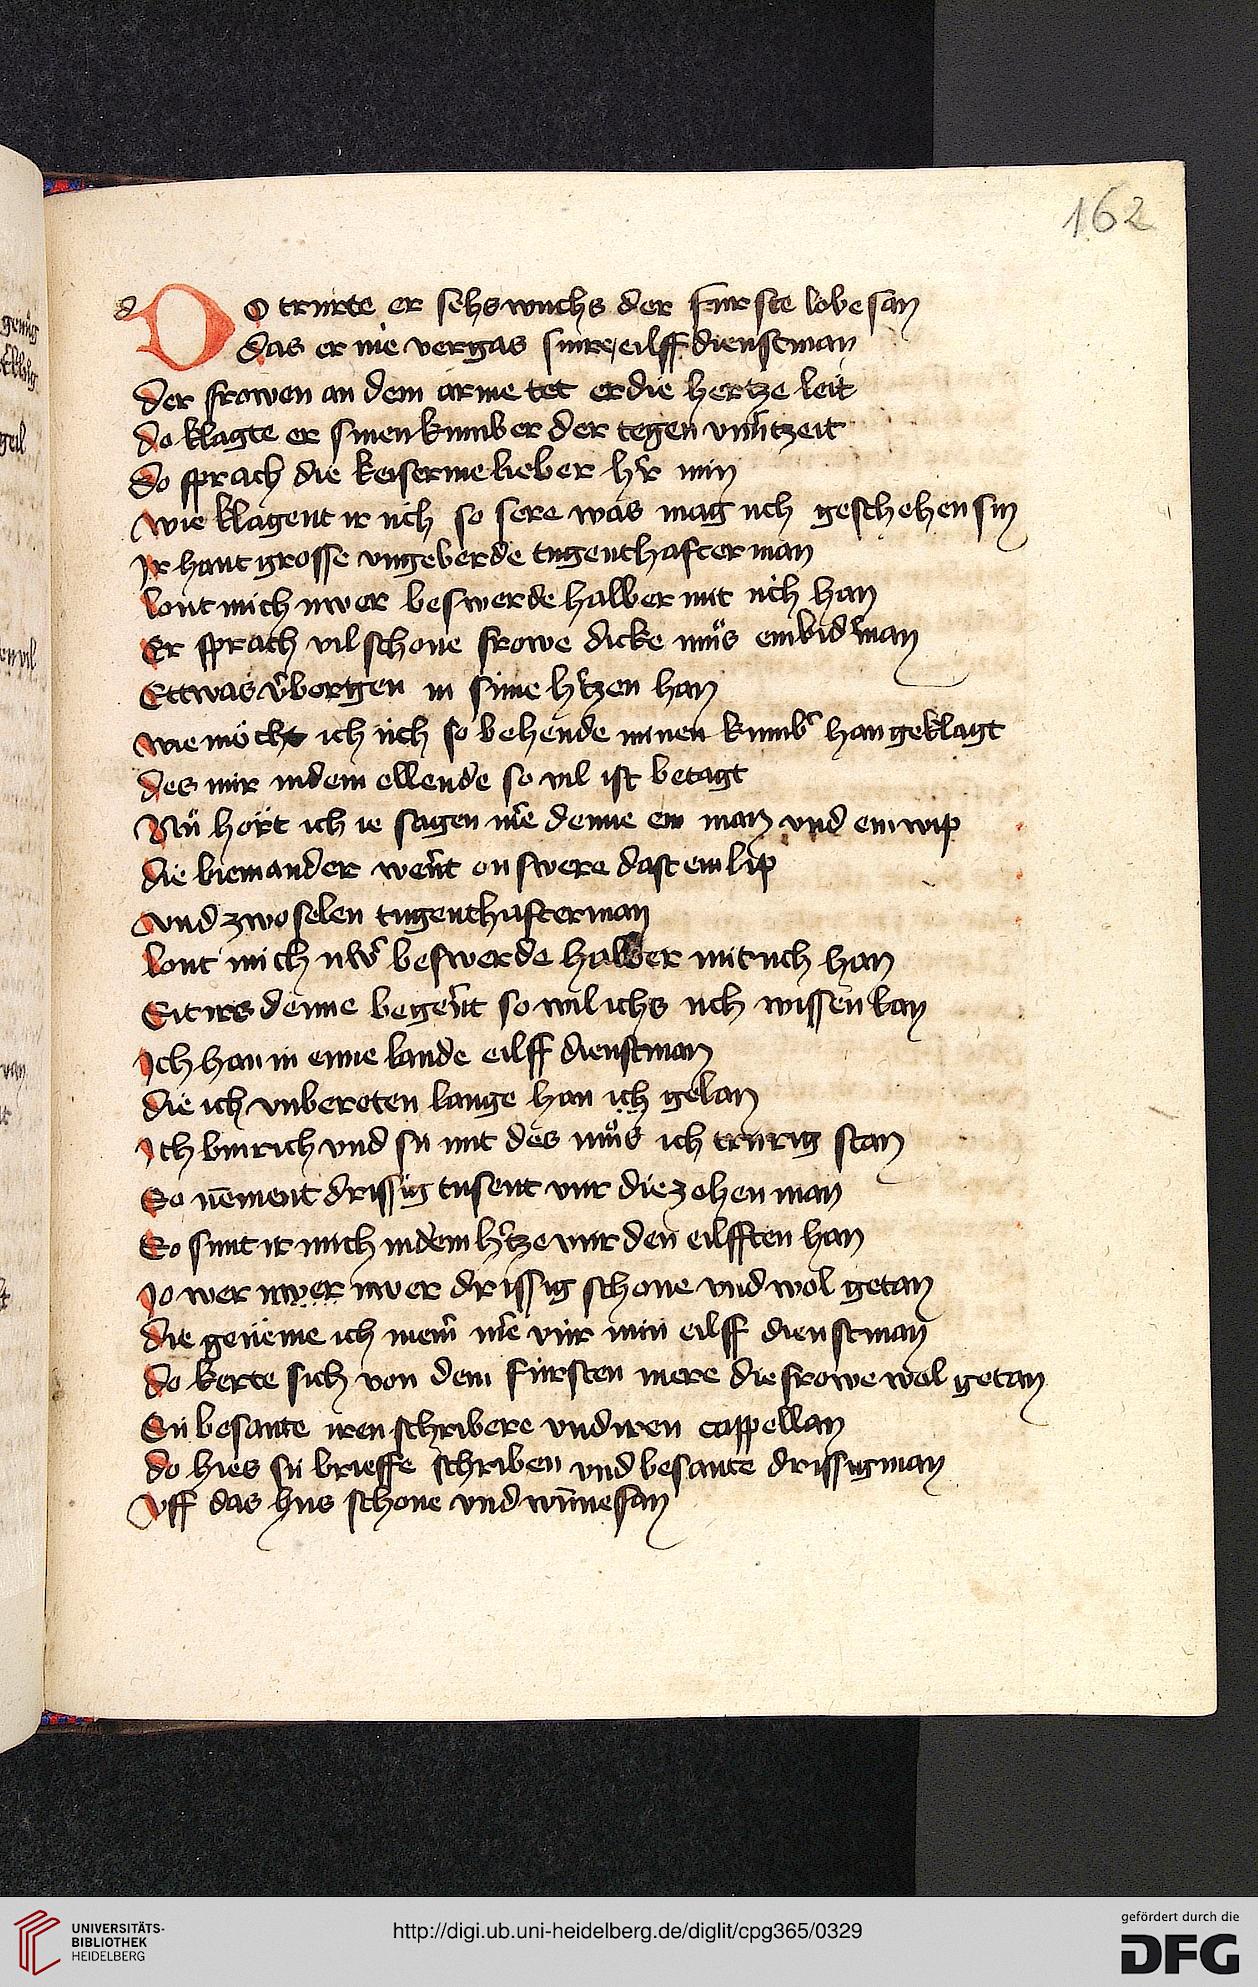 162
d Do trurte er sehs wuchs der furste lobesan
das er nie vergas sinre eilff dienstman
der frowen an dem arme tet er die hertze leit
do klagte er sinen kumber der tegen vnuͥrtzeit
do sprach die keiserine lieber hʼr min
wie klagent ir uͥch so sere was mag uch geschehen sin
Jr hant grosse vngeberde tugenthafter man
lont mich uwer beswerde halber mit uͥch han
Er sprach vil schone frowe dicke muͦs ein bider man
Ettwas vʼborgen in sime hʼtzen han
wie moͤcht ich uͥch so behende minen kumbʼ han geklagt
des mir in dem ellende so vil ist betagt
Nuͦ hoͤrt ich ie sagen me denne ein man vnd ein wip
die bi einander werͥnt on swere dast ein lip
vnd zwo selen tugenthafter man
lont mich uwʼ beswerde halber mit uch han
Sit irs denne begerͥnt so wil ichs uch wissen lan
Jch han in eime lande eilff dienstman
die ich vnberoten lange han ich gelan
Jch bin rich vnd suͥ nut des muͦs ich trurig stan
So nēment drissig tusent vur die zehen man
So sunt ir mich in dem hʼtze vur den eilfften han
Jo wer uwer uwer drissig schone vnd wol getan
die geneme ich niemʼ me vuͥr min eilff dienstman
do kerte sich von dem fuͥrsten mere die frowe wol getan
Suͥ besante iren schribere vnd iren cappellan
do hies suͥ brieffe schriben vnd besante drissig man
Vff das hus schone vnd wuͥnnesan
UNIVERSITÄTS-
BIBLIOTHEK
HEIDELBERG
http://digi.ub.uni-heidelberg.de/diglit/cpg365/0329
gefördert durch die
DFG